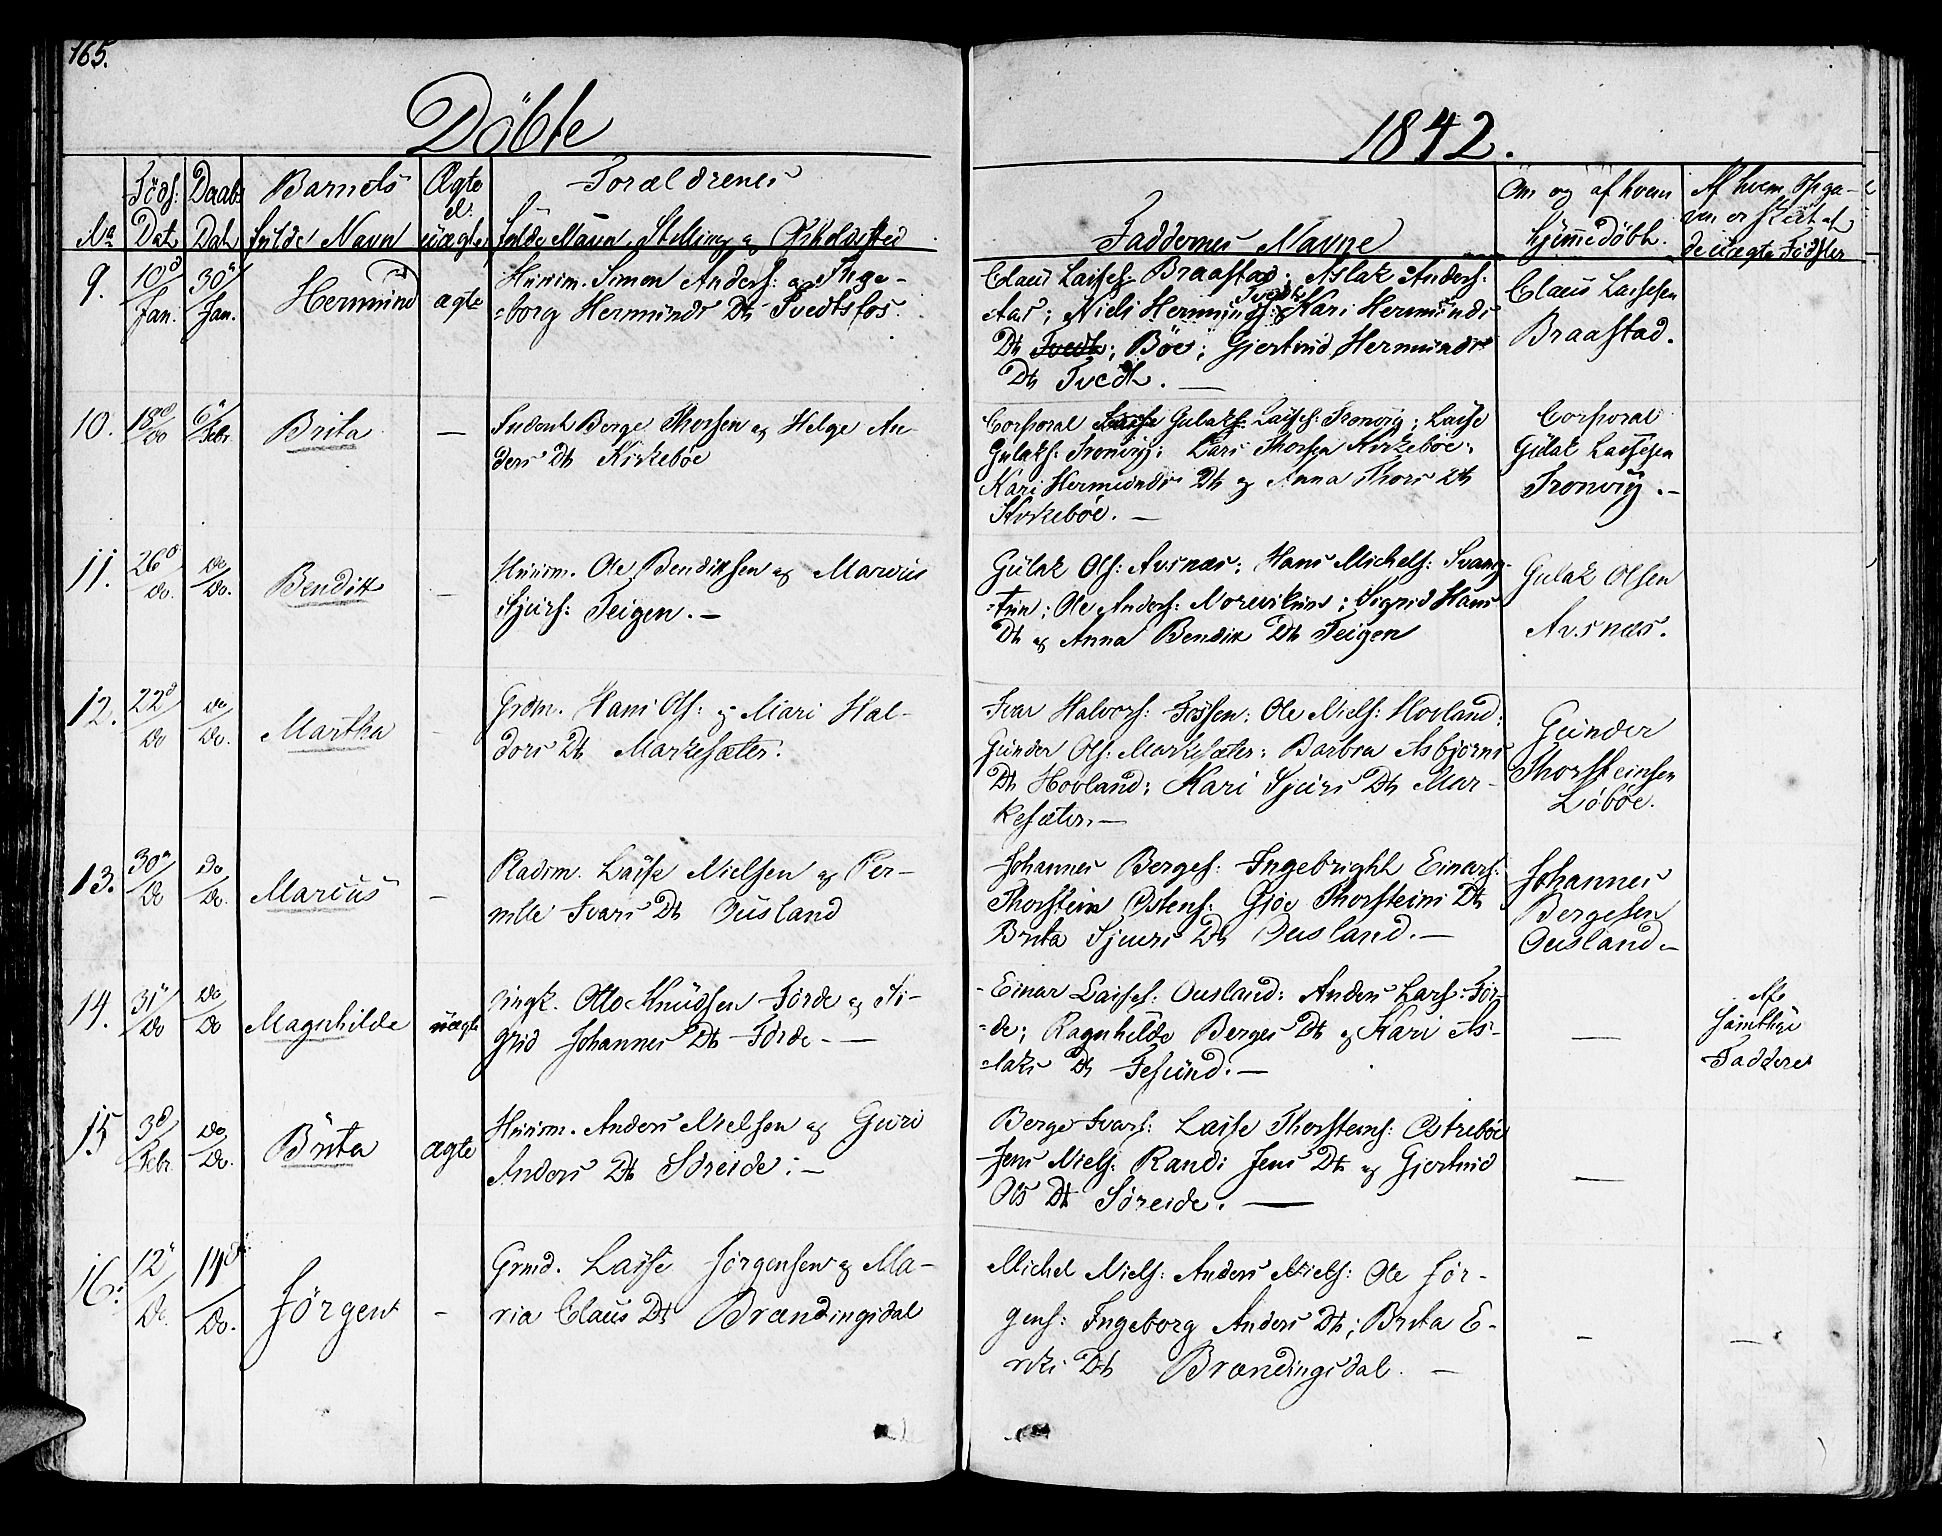 165.
Döbte
1842.
Föds: Dat
Daabs Dat
Barnets
fulde Navn
Ægte
el:
uægte
Forældrenes
fulde Navn, Stilling og Opholdsted
No
Faddernes Navne
Om og af hvem
hjemmedöbt.
Af hvem Opga-
ven er skeet at
de uægte Födsler
9.
10d
Jan.
30te
Jan.
Hermund
ægte
Huusm. Simon Anders: og Inge-
-borg Hermunds Dtr Tvedtsfos.
Claus Lasses: Braastad: Aslak Anders:
Aas; Niels Hermunds: Tvedt; Kari Hermunds
Dtr Tvedt; Böe; Gjertrud Hermunds
Dtr Tvedt. —
Claus Lassesen
Braastad.
10.
18d
Do
6te
Febr.
Brita
—
Inderst Berge Thorsen og Helge An-
ders Dtr Kirkeböe
Corporal Lasse Gulaks: Lasses: Tronvig; Lasse
Gulaks: Tronvig; Lars Thorsen Kirkeböe;
Kari Hermunds Dtr og Anna Thors Dtr
Kirkeböe. —
Corporal
Gulak Lassesen
Tronvig. —
11.
26d
Do.
Do
Do.
Bendik
—
Huusm. Ole Bendiksen og Marcus
Sjurs: Teigen. —
Gulak Ols: Avsnæs; Hans Michels: Svang-
-tun; Ole Anders: Noreviken; Sigrid Hans
Dtr og Anna Bendik Dtr Teigen
Gulak Olsen
Avsnæs.
12.
22d
Do
Do
Do.
Martha
-
Grdm. Hans Ols: og Mari Hal-
dors Dtr Markesæter.
Ivar Halvors: Fossen; Ole Niels: Hovland;
Gunder Ols: Markesæter; Barbra Asbjörns
Dtr Hovland; Kari Sjurs Dtr Mar-
kesæter. —
Gunder
Thorsteinsen
Löböe.
13.
30te
Do
Do
Do.
Marcus
—
Pladsm. Lasse Nielsen og Per-
nille Ivars Dtr Ousland
Johannes Berges: Ingebright Einars:
Thorstein Ostens: Gjöe Thorsteins Dtr
Brita Sjurs Dtr Ousland. —
Johannes
Bergesen
Ousland. —
14.
31te
Do
Do
Do
Magnhilde
uægte
Ungk. Otto Knudsen Förde og Si-
grid Johannes Dtr Förde. —
Einar Lasses: Ousland; Anders Lars: För-
-de; Ragnhilde Berges Dtr og Kari As-
-laks Dtr Tesund. —
—
Af
samtlige
Faddere
15
3d
Febr.
Do
Do.
Brita
ægte
Huusm. Anders Nielsen og Guri
Anders Dtr Söreide: —
Berge Ivars: Lasse Thorsteins: Ostreböe
Jens Niels: Randi Jens Dtr og Gjertrud
Ols Dtr Söreide. —
—
16.
12te
Do.
14d
Do.
Jörgen
-
Grmd. Lasse Jörgensen og Ma-
ria Claus Dtr Brændingsdal
Michel Niels: Anders Niels: Ole Jör-
gens: Ingeborg Anders Dtr; Brita E-
riks Dtr Brændingsdal. —
-
—